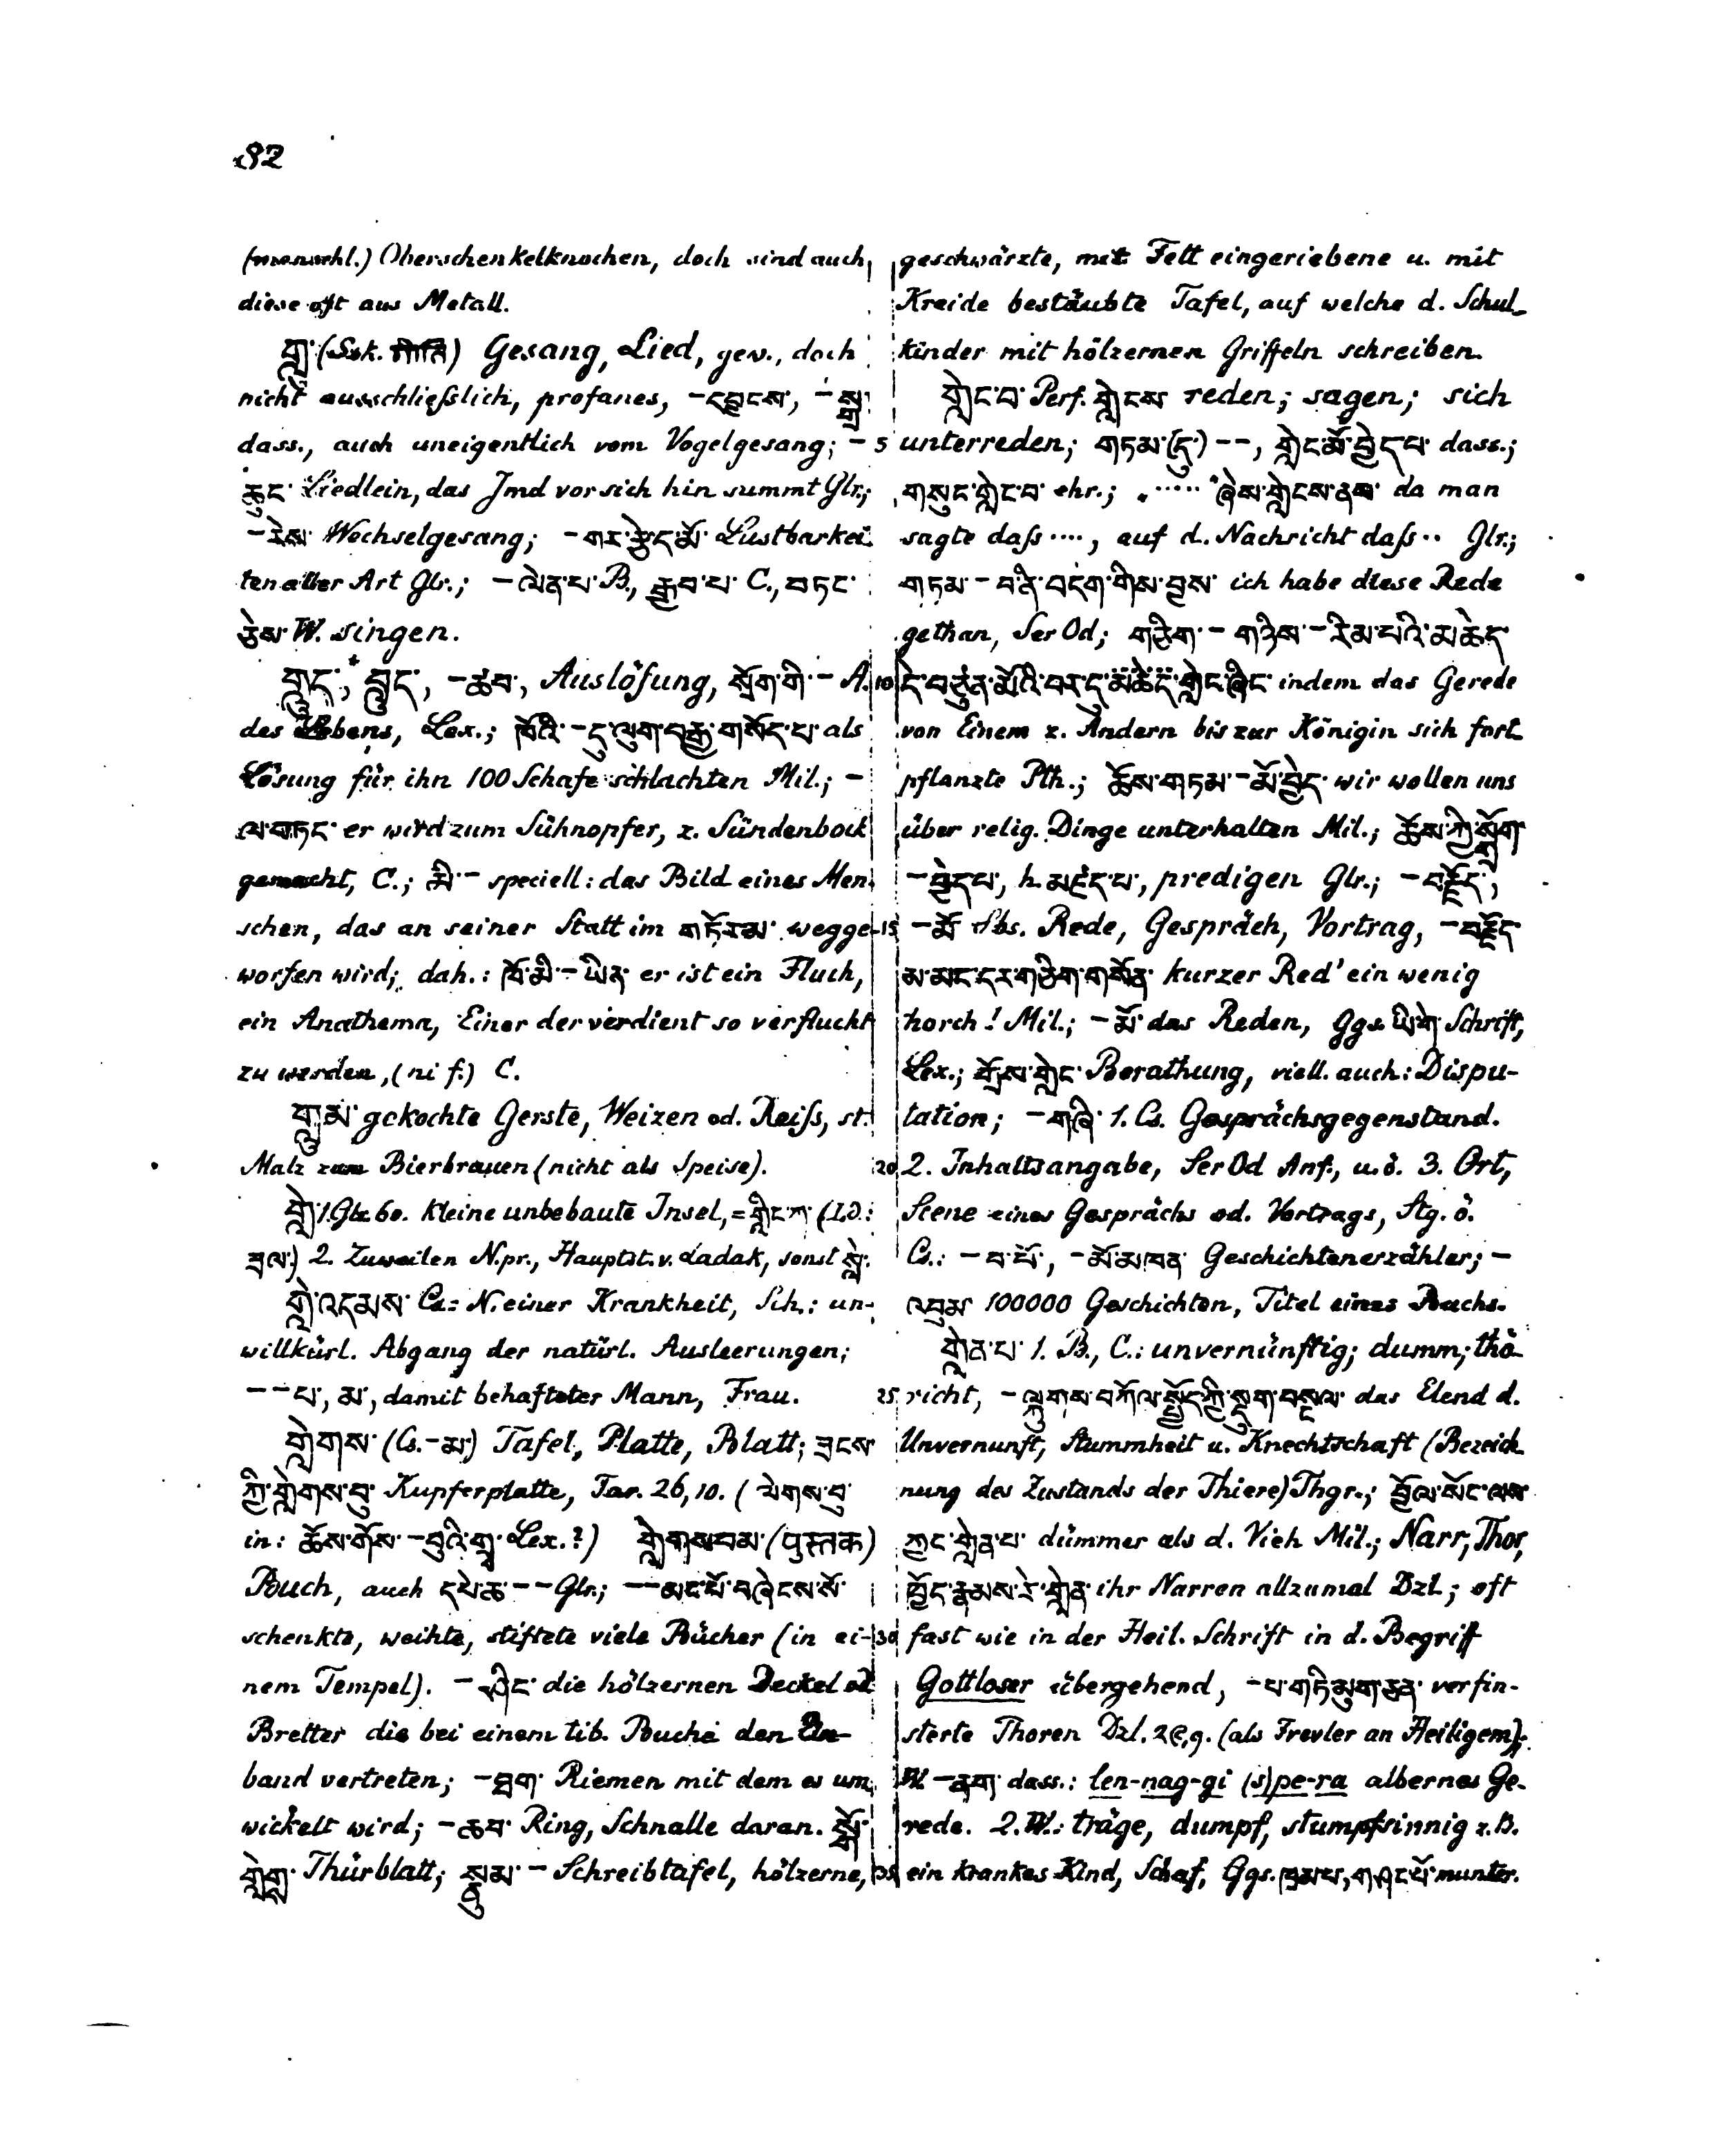 82
(menschl.) Oberschenkelknochen, doch sind auch
diese oft aus Metall.
གླུ་ (Ssk. गीति) Gesang, Lied, gew., doch
nicht ausschließlich, profanes, –དབྱངས་, –སྒྲ་
dass., auch uneigentlich vom Vogelgesang; –
ཆུང་ Liedlein, das Jmd vor sich hin summt Glr.;
–རེས་ Wechselgesang; –གར་རྩེད་མོ་ Lustbarkei-
ten aller Art Glr.; –ལེན་པ་ B., རྒྱབ་པ་ C., བཏང་
ཅེས་ W. singen.
གླུད་, བླུད་, –ཚབ་, Auslösung, སྲོག་གི་ – A.
des Lebens, Lex.; ཁོའི་ –དུ་ལུག་བརྒྱ་གསོད་པ་ als
Lösung für ihn 100 Schafe schlachten Mil.; –
ལ་བཏང་ er wird zum Sühnopfer, z. Sündenbock
gemacht, C.; མི་ – speciell: das Bild eines Men-
schen, das an seiner Statt im གཏོརམ་ wegge-
worfen wird; dah.: ཁོ་མི་ – ཡིན་ er ist ein Fluch,
ein Anathema, Einer der verdient so verflucht
zu werden, (ni f.) C.
གླུམ་ gekochte Gerste, Weizen od. Reiss, st.
Malz zum Bierbrauen (nicht als Speise).
གླེ་ 1. Glr. 60. kleine unbebaute Insel, = གླིང་ཀ་ (Ld.:
ཟལ་) 2. Zuweilen N.pr., Hauptst. v. Ladak, sonst སླེ་.
གླེ་འདམས་ Cs.: N. einer Krankheit, Sch.: un-
willkürl. Abgang der natürl. Ausleerungen;
– –པ་, མ་, damit behafteter Mann, Frau.
གླེགས་ (Cs. –མ་) Tafel, Platte, Blatt; ཟངས་
ཀྱི་གླེགས་བུ་ Kupferplatte, Tar. 26, 10. (ལེགས་བུ་
in: ཆོས་གོས་ –བུའི་གྲྭ་ Lex.?) གླེགསབམ་ (पुस्तक)
Buch, auch དཔེ་ཆ་ – – Glr.; – –མང་པོ་བཞེངས་སོ་
schenkte, weihte, stiftete viele Bücher (in ei-
nem Tempel). –ཤིང་ die hölzernen Deckel od.
Bretter die bei einem tib. Buche den Ein-
band vertreten; –ཐག་ Riemen mit dem es um-
wickelt wird; –ཆབ་ Ring, Schnalle daran. སྒོ་
གླེགས་ Thürblatt; སྣུམ་ – Schreibtafel, hölzerne,
geschwärzte, mit Fett eingeriebene u. mit
Kreide bestäubte Tafel, auf welche d. Schul-
kinder mit hölzernen Griffeln schreiben.
གླེང་བ་ Perf. གླེངས reden; sagen; sich
5 unterreden; གཏམ་(དུ་) – –, གླེང་མོ་བྱེད་པ་ dass.;
གསུང་གླེང་བ་ ehr.; ..... ་ཞེས་གླེངས་ནས་ da man
sagte dass ...., auf d. Nachricht dass .. Glr.;
གཏམ་ – བ་ནི་བདག་གིས་བྱས་ ich habe diese Rede
gethan, Ser Od; གཅིག་ – གཉིས་ – རིམ་པའི་མཆེད་
10 དེ་བཙུན་མོའི་བར་དུ་མོ་ཆེད་དོ་གླེང་ཞིང་ indem das Gerede
von Einem z. Andern bis zur Königin sich fort-
pflanzte Pth.; ཆོས་གཏམ་ –མོ་བྱེད་ wir wollen uns
über relig. Dinge unterhalten Mil.; ཆོས་ཀྱི་སྒྲོག་
–བྱེད་པ་, h. མཛད་པ་, predigen Glr.; –བརྗོད་,
15 –མོ་ Sbs. Rede, Gespräch, Vortrag, –བརྗོད་
མ་མང་དར་གཅིག་གསོན་ kurzer Red' ein wenig
horch! Mil.; –མོ་ das Reden, Ggs. ཡིགེ་ Schrift,
Lex.; གྲོས་གླེང་ Berathung, viell. auch: Dispu-
tation; –གཞི་ 1. Cs. Gesprächsgegenstand.
20 2. Inhaltsangabe, Ser Od Anf., u. ö. 3. Ort,
Scene eines Gesprächs od. Vortrags, Stg. ö.
Cs.: –བ་པོ་, –མོ་མཁན་ Geschichtenerzähler; –
འབུམ་ 100000 Geschichten, Titel eines Buchs.
གླེན་པ་ 1. B., C.: unvernünftig; dumm; thö-
25 richt, –ལྐུགས་བཀོལ་སྤྱོད་ཀྱི་སྡུག་བསྔལ་ das Elend d.
Unvernunft, Stummheit u. Knechtschaft (Bezeich-
nung des Zustands der Thiere) Thgr.; བྱོལ་སོང་ལས་
ཀྱང་གླེན་པ་ dümmer als d. Vieh Mil.; Narr, Thor,
ཁྱོད་རྣམས་རེ་གླེན་ ihr Narren allzumal Dzl; oft
30 fast wie in der Heil. Schrift in d. Begriff
Gottloser übergehend, –པ་གཏི་མུག་ཅན་ verfin-
sterte Thoren Dzl. २९, 9. (als Frevler an Heiligem);
W. –ནག་ dass.: len-nag-gi (s)pe-ra albernes Ge-
rede. 2. W.: träge, dumpf, stumpfsinnig z. B.
35 ein krankes Kind, Schaf, Ggs. ཁྲམཔ་, གཤང་པོ་ munter.